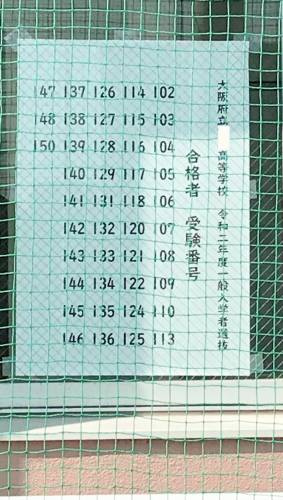 大阪府立 高等学校 令和二年度一般入学者選抜
合格者 受験番号
102 103 104 105 106 107 108 109 110 113
114 115 116 117 118 120 121 122 124 125
126 127 128 129 131 132 133 134 135 136
137 138 139 140 141 142 143 144 145 146
147 148 150